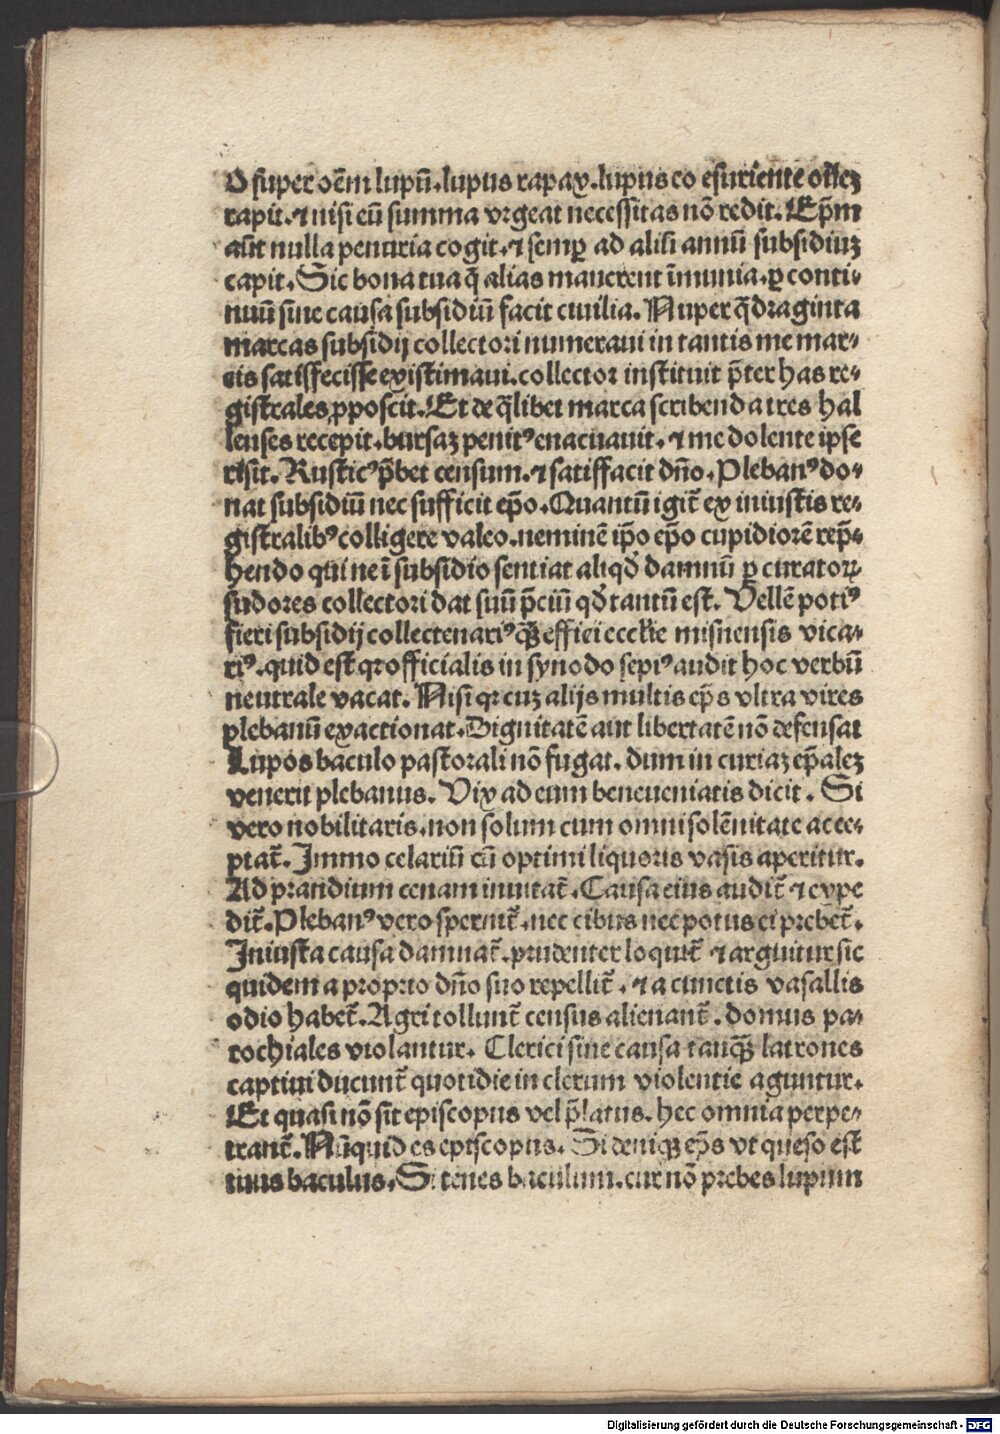 O super oēm lupū.lupus rapax.lupus eo esuriente ouez
rapit.⁊ nisi eū summa vrgeat necessitas nō redit. Ep̄m
aūt nulla penuria cogit.⁊ semꝑ ad alifi annū subsidiuʒ
capit. Sic bona tua q̄ alias manerent īmunia.ꝑ conti⸗
nuū sine causa subsidiū facit ciuilia. Nuper q̄draginta
marcas subsidij collectori numeraui in tantis me mar⸗
cis satisfecisse existimaui.collector instituit p̄ter has re⸗
gistrales ꝓposcit. Et de q̄libet marca scribenda tres hal
lenses recepit.bursaʒ penitꝰ euacuauit.⁊ me dolente ipse
risit. Rusticꝰ p̄bet censum.⁊ satisfacit dn̄o. Plebanꝰ do⸗
nat subsidiū nec sufficit ep̄o. Quantū igit̄ ex iniustis re⸗
gistralibꝰ colligere valeo.neminē ip̄o ep̄o cupidiorē rep̄⸗
hendo qui ne ī subsidio sentiat aliqd̄ damnū ꝑ curatoꝝ
sudores collectori dat suū p̄ciū qd̄ tantū est. Vellē potiꝰ
fieri subsidij collectenariꝰ q̄ʒ effici eccl̄ie misnensis vica⸗
riꝰ.quid est qꝛ officialis in synodo sepiꝰ audit hoc verbū
neutrale vacat. Nisi qꝛ cuʒ alijs multis ep̄s vltra vires
plebanū exactionat. Dignitatē aut libertatē nō defensat
Lupos baculo pastorali nō fugat. dum in curiaʒ ep̄aleʒ
venerit plebanus. Vix ad eum beneueniatis dicit. Si
vero nobilitaris.non solum cum omni solēnitate acce⸗
ptat̄. Immo celariū cū optimi liquoris vasis aperitur.
Ad prandium cenam inuitat̄. Causa eius audit̄ ⁊ expe
dit̄. Plebanꝰ vero spernit̄.nec cibus nec potus ei prebet̄.
Iniusta causa damnat̄.prudenter loquit̄ ⁊ arguitur sic
quidem a proprio dn̄o suo repellit̄.⁊ a cunctis vasallis
odio habet̄. Agri tollunt̄ census alienant̄. domus pa⸗
rochiales violantur. Clerici sine causa tanq̄ʒ latrones
captiui ducunt̄ quotidie in clerum violentie aguntur.
Et quasi nō sit episcopus vel p̄latus. hec omnia perpe⸗
trant̄. Nūquid es episcopus. Si deniqʒ ep̄s vt queso est
tuus baculus. Si tenes baculum.cur nō prebes lupum
Digitalisierung gefördert durch die Deutsche Forschungsgemeinschaft - DFG